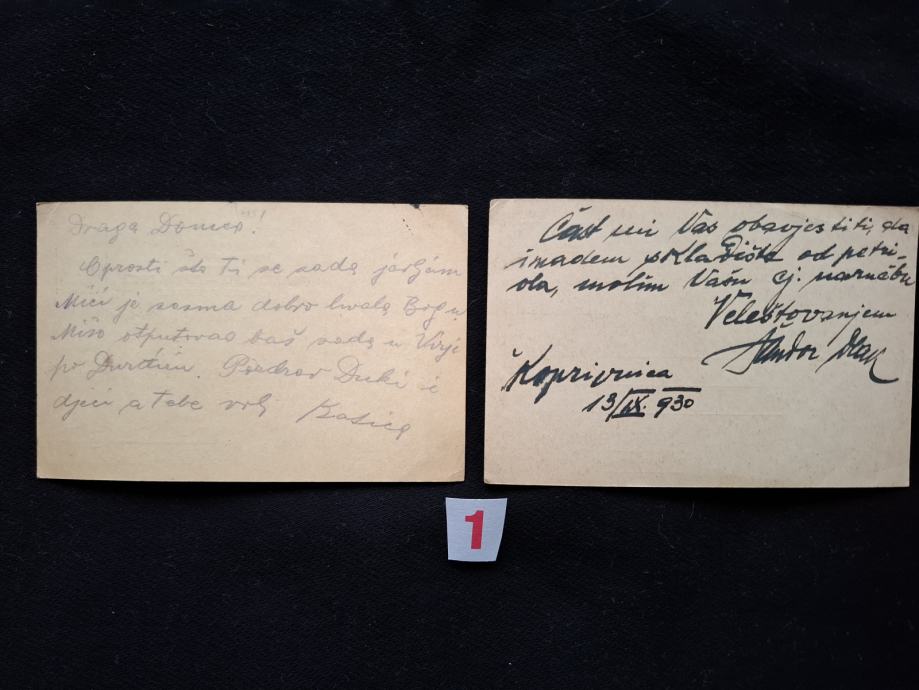 Draga
Oprosti što Ti se sada javljam
Mići je sasma dobro hvala Bogu
Mišo otputovao baš sada u Virje
po Pozdrav Duki i
djeci a tebe voli
Čast mi Vas obavjestiti, da
imadem skladište od petri-
ola, molim Vašu cj. narudžbu
Veleštovanjem
Šandor
Koprivnica
13/IX. 930
1